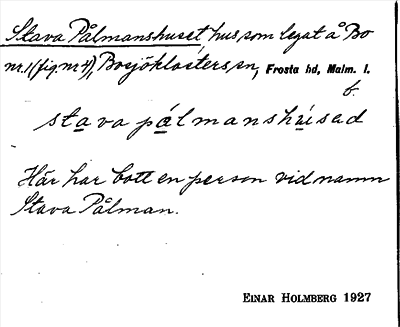 Stava Pålmanshuset, hus, som legat å Bo
nr. 1 (fig. nr 4), Bosjöklosters sn, Frosta hd, Malm. l.
b.
stava pålmanshúsad
Här har bott en person vid namn
Stava Pålman.
EINAR HOLMBERG 1927